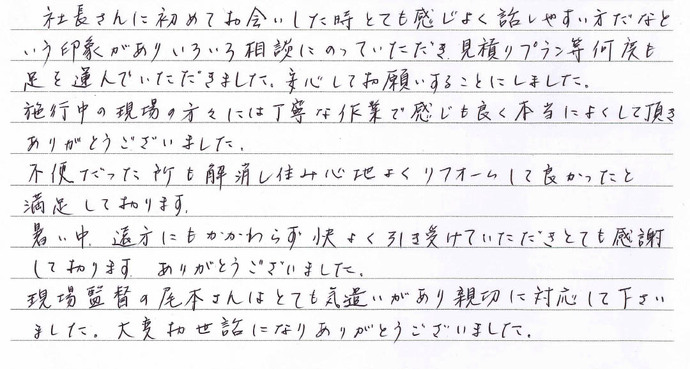 社長さんに初めてお会いした時とても感じよく話しやすい方だなと
いう印象がありいろいろ相談にのっていただき、見積りプラン等何度も
足を運んでいただきました。安心してお願いすることにしました。
施行中の現場の方々には丁寧な作業で感じも良く本当によくして頂き
ありがとうございました。
不便だった所も解消し住み心地よくリフォームして良かったと
満足しております。
暑い中、遠方にもかかわらず快よく引き受けていただきとても感謝
しております。ありがとうございました。
現場監督の尾本さんはとても気遣いがあり親切に対応して下さい
ました。大変お世話になりありがとうございました。